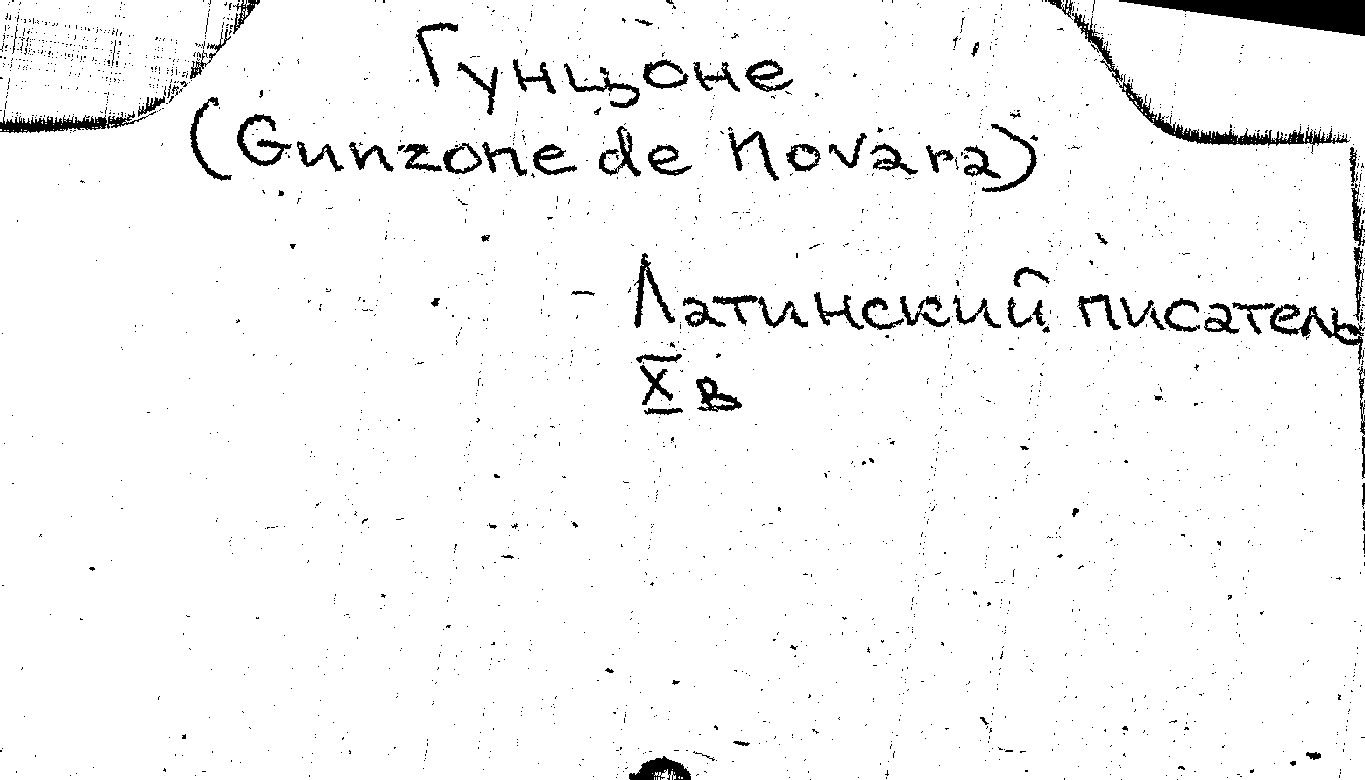 Гунцоне
(Gunzone de Novara)
- Латинский писатель
X в